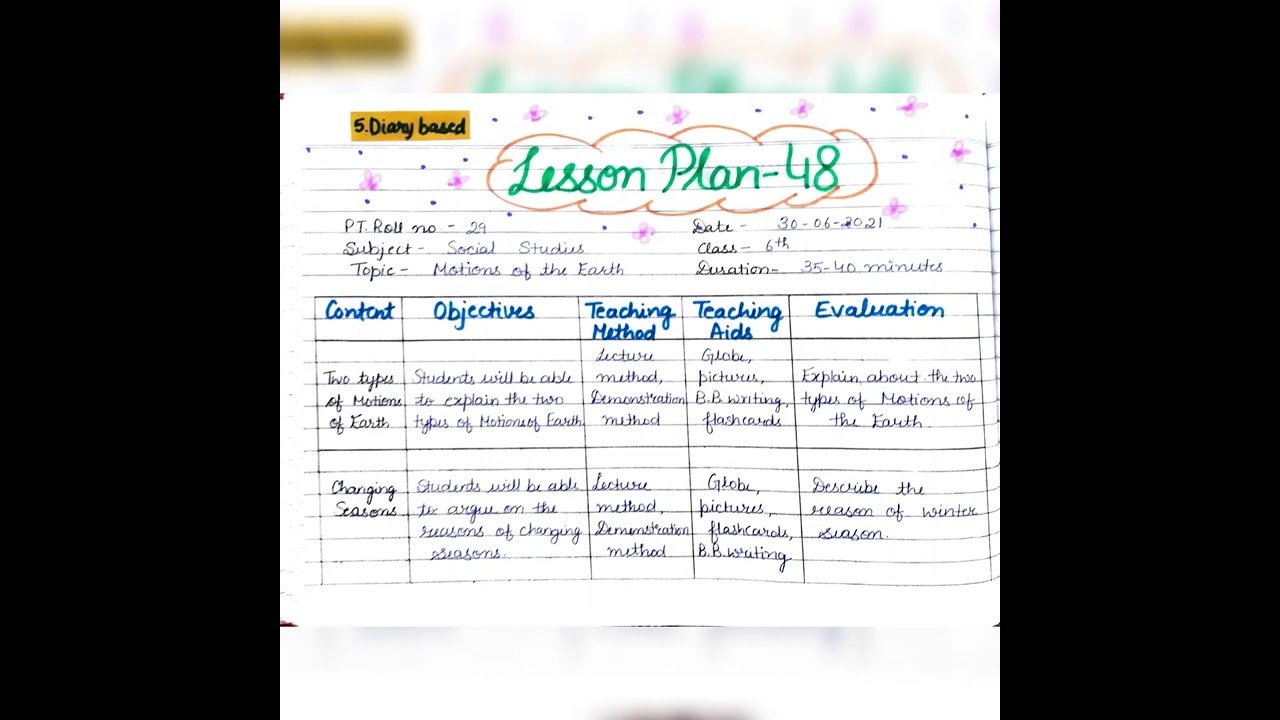 5. Diary based
Lesson Plan-48
P.T. Roll no - 29
Date - 30-06-2021
Subject - Social Studies
Class - 6th
Topic - Motions of the Earth
Duration - 35-40 minutes
Content
Objectives
Teaching
Method
Teaching
Aids
Evaluation
Two types
of Motions
of Earth
Students will be able
to explain the two
types of Motions of Earth
Lecture
method,
Demonstration
method
Globe,
pictures,
B.B. writing,
flashcards
Explain about the two
types of Motions of
the Earth.
Changing
Seasons
Students will be able
to argue on the
reasons of changing
seasons.
Lecture
method,
Demonstration
method
Globe,
pictures,
flashcards,
B.B. writing
Describe the
reason of winter
season.